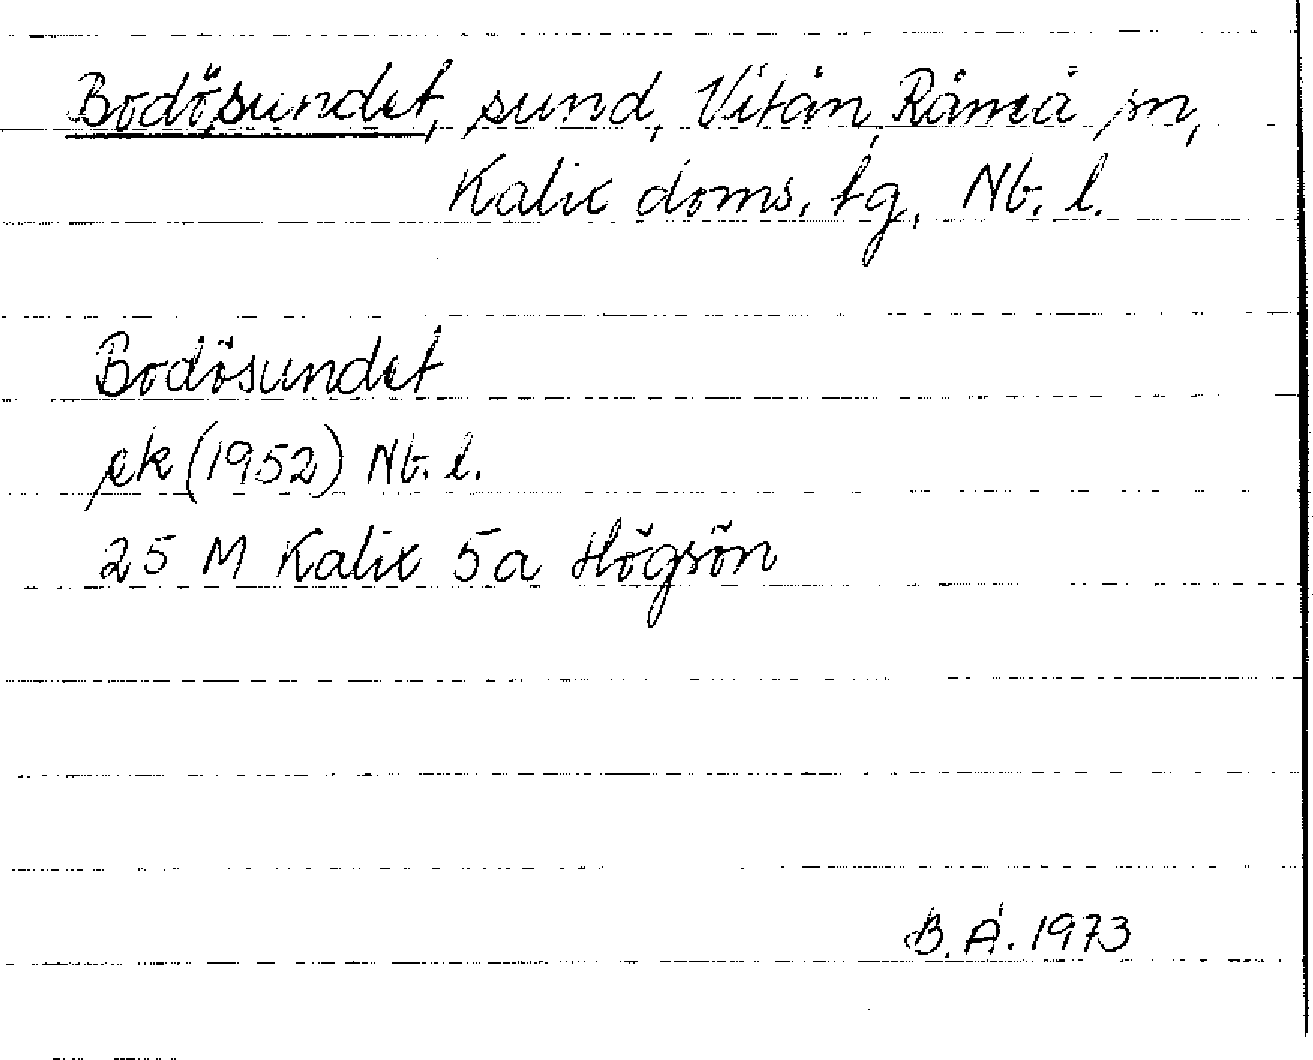 Bodösundet, sund, Vitån, Råneå sn,
Kalix doms. tg, Nb. l.
Bodösundet
ek (1952) Nb. l.
25 M Kalix 5a Högsön
B. Å. 1973